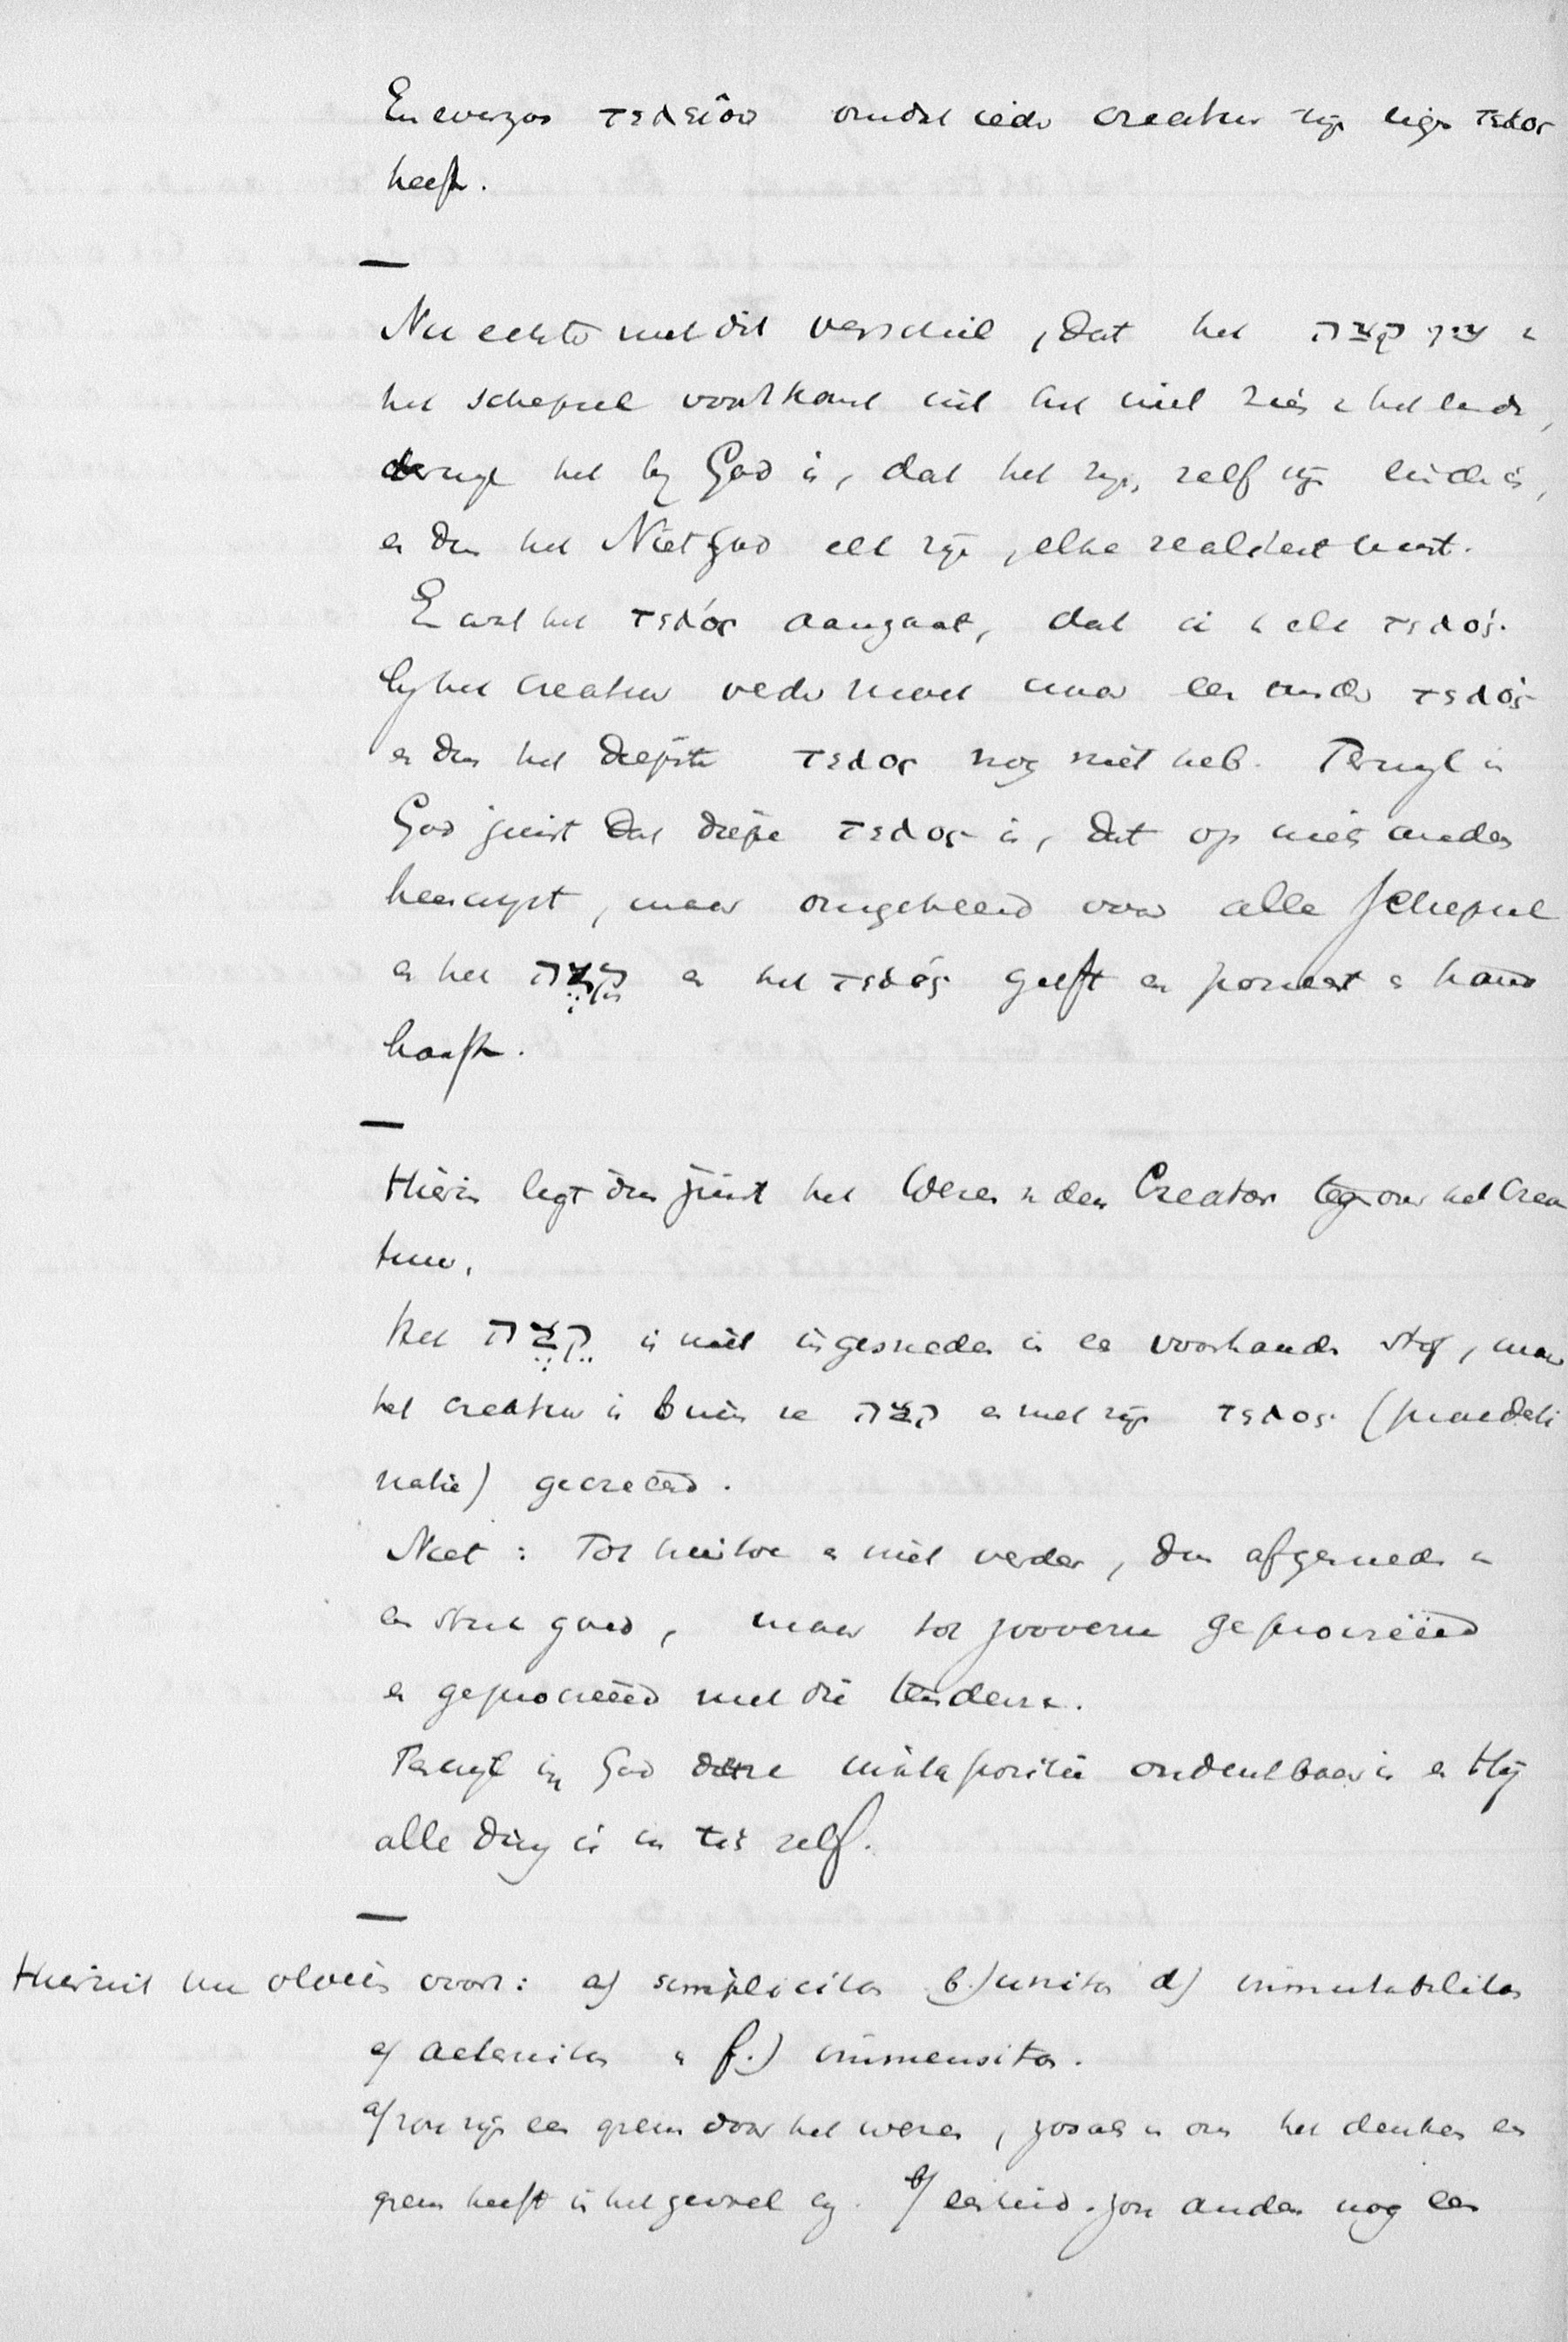 En evenzoo τελεῖον omdat ieder creatuur zijn eigen τελος
heeft.
Nu echter met dit verschil, dat het קצה
het schepsel voortkomt uit het niet zien het einde,
terwijl het bij God is, dat het zijn zelf zijn einde is,
en dus het Niet God elk zijn, elke realiteit
En wat het τελός aangaat, dat elk τελός
bij het creatuur weder moet naar een ander τελός
en dus het diepste τελος nog niet heb. Terwijl in
God juist dat diepe τελος is, dat op niets anders
heenwijst, maar omgekeerd voor alle schepsel
en het קצה en het τελός geeft en poneert en hand
haaft.
Hierin ligt dus juist het Wezen v den Creator tegenover het Crea
tuur.
Het קצה is niet ingesneden in een voorhanden stof, maar
het creatuur is binnen zijn קצה en met zijn τελος (praedesti
natie) gecreëerd.
Niet: Tot hiertoe en niet verder, dus afgesneden v
een stuk goed, maar tot zooverre geprocreëerd
en geprocreëerd met die tendenz.
Terwijl bij God deze ondenkbaar is en Hij
alle ding is in zelf.
Hieruit nu vloeien voort: a) simplicitas b.) unitas d) immutabilitas
e) aeternitas en f.) immensitas.
a) zou zijn een grens door het wezen, zooals v ons het denken een
grens heeft in het gevoel b) eenheid. zou anders nog een